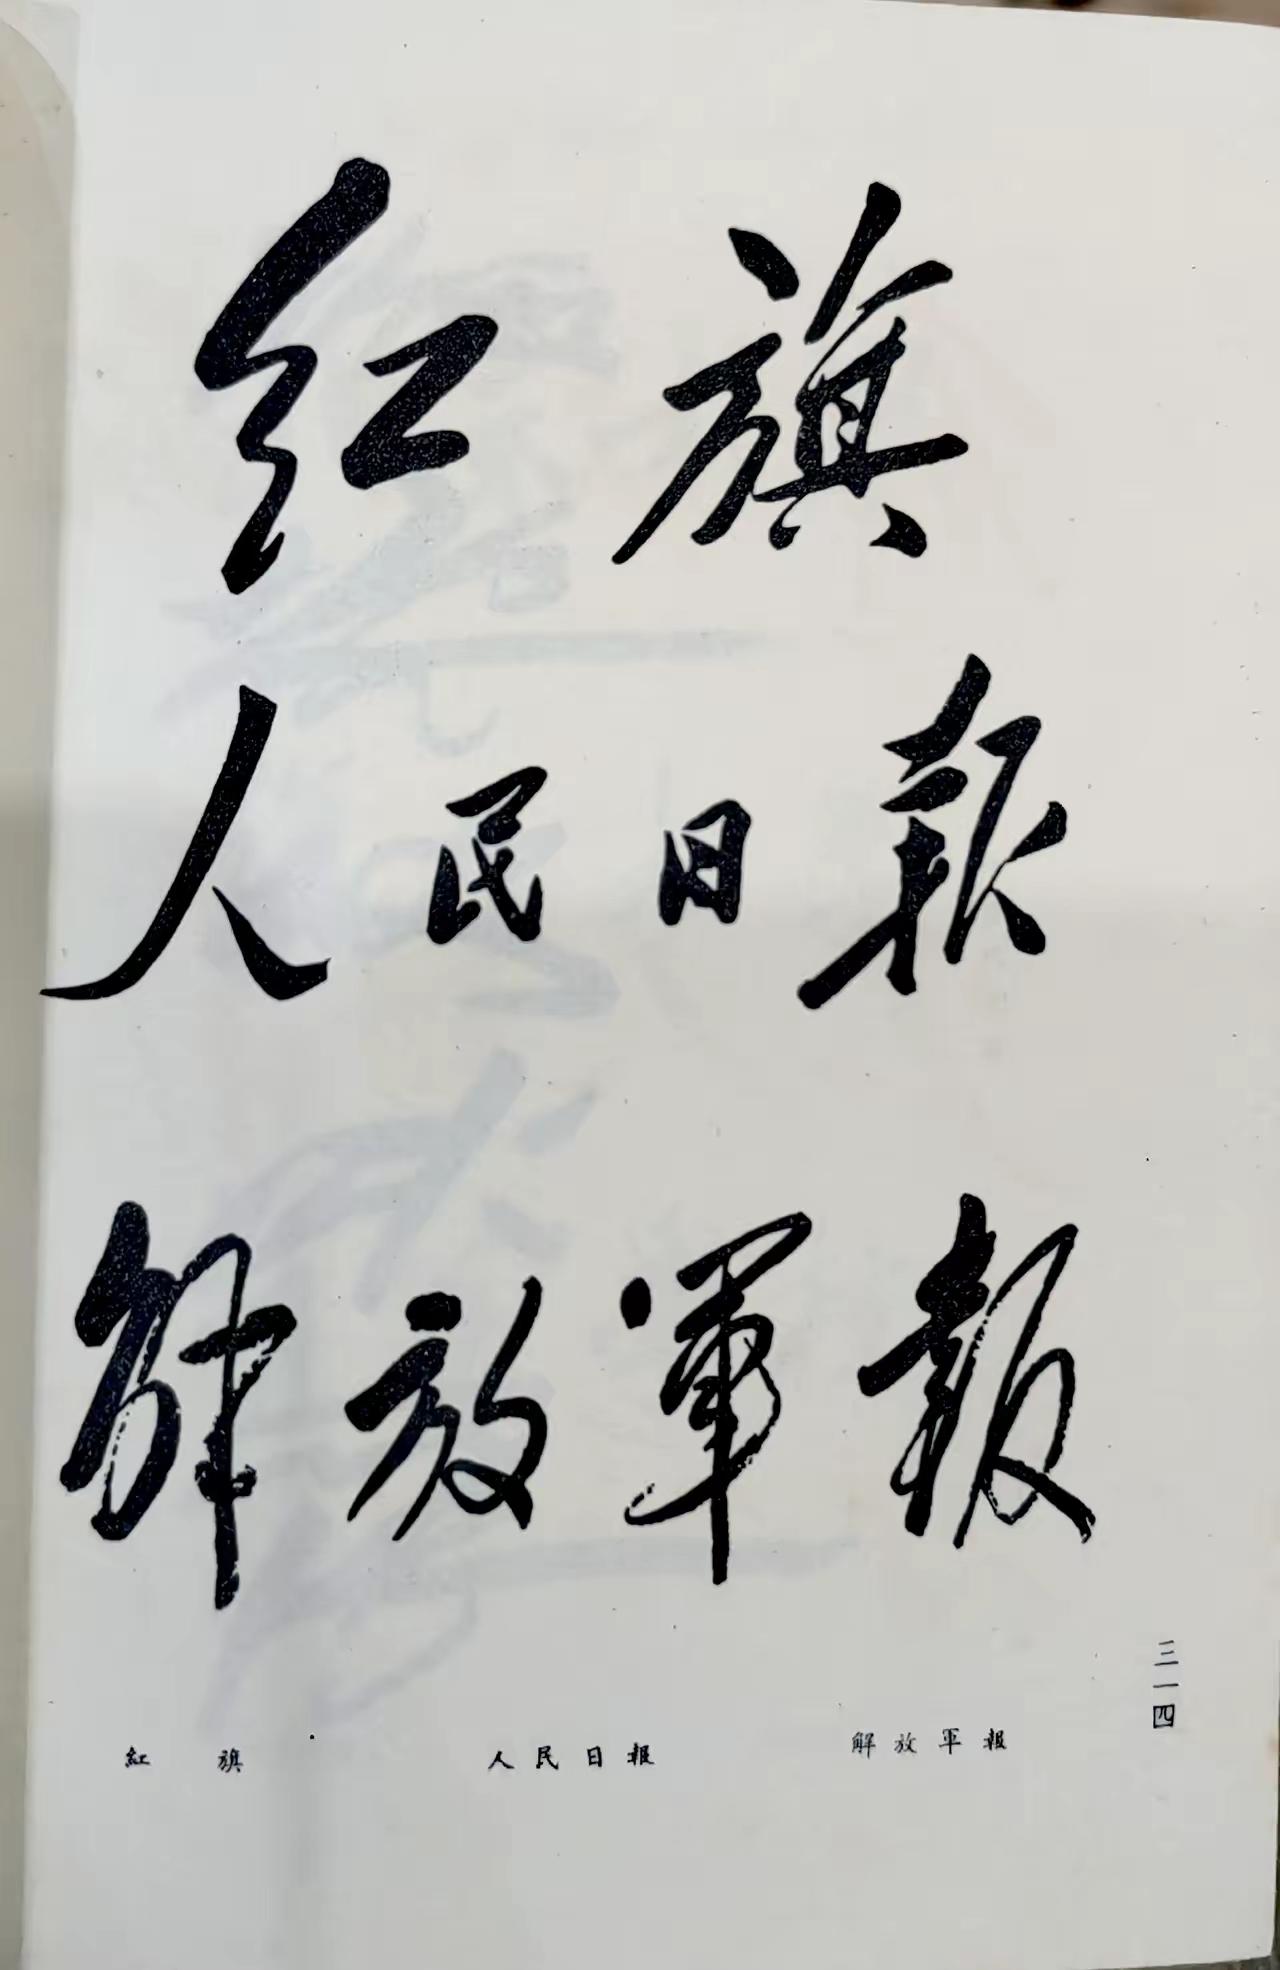 红旗
人民日報
解放軍報
三一四
紅旗 人民日報 解放軍報